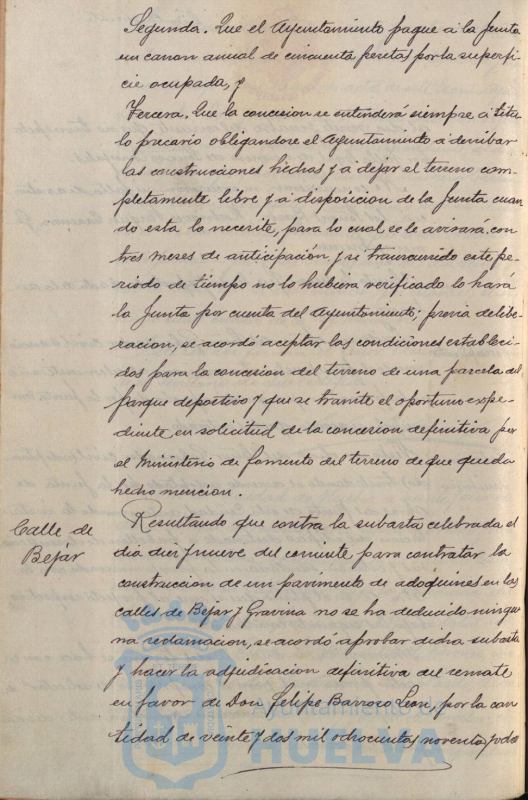 Segunda. Que el Ayuntamiento pague á la Junta
un canon anual de cincuenta pesetas por la superfi-
cie ocupada, y
Tercera, Que la concesion se entenderá siempre á titu-
lo precario obligandose el Ayuntamiento á derribar
las construcciones hechas y á dejar el terreno com-
pletamente libre y á disposicion de la Junta cuan-
do esta lo necesite, para lo cual se le avisará con
tres meses de anticipación y si transcurrido este pe-
riodo de tiempo no lo hubiera verificado lo hará
la Junta por cuenta del Ayuntamiento; previa delibe-
racion, se acordó aceptar las condiciones estableci-
das para la concesion del terreno de una parcela del
parque deportivo y que se tramite el oportuno expe-
diente en solicitud de la concesion definitiva por
el Ministerio de fomento del terreno de que queda
hecho mencion.
Calle de
Bejár
Resultando que contra la subasta celebrada el
dia diez y nueve del corriente para contratar la
construccion de un pavimento de adoquines en las
calles de Bejar y Gravina no se ha deducido ningu-
na reclamacion, se acordó aprobar dicha subasta
y hacer la adjudicacion definitiva del remate
en favor de Don Felipe Barroso Leon, por la can-
tidad de veinte y dos mil ochocientas noventa y dos
Ayuntamiento de
HUELVA